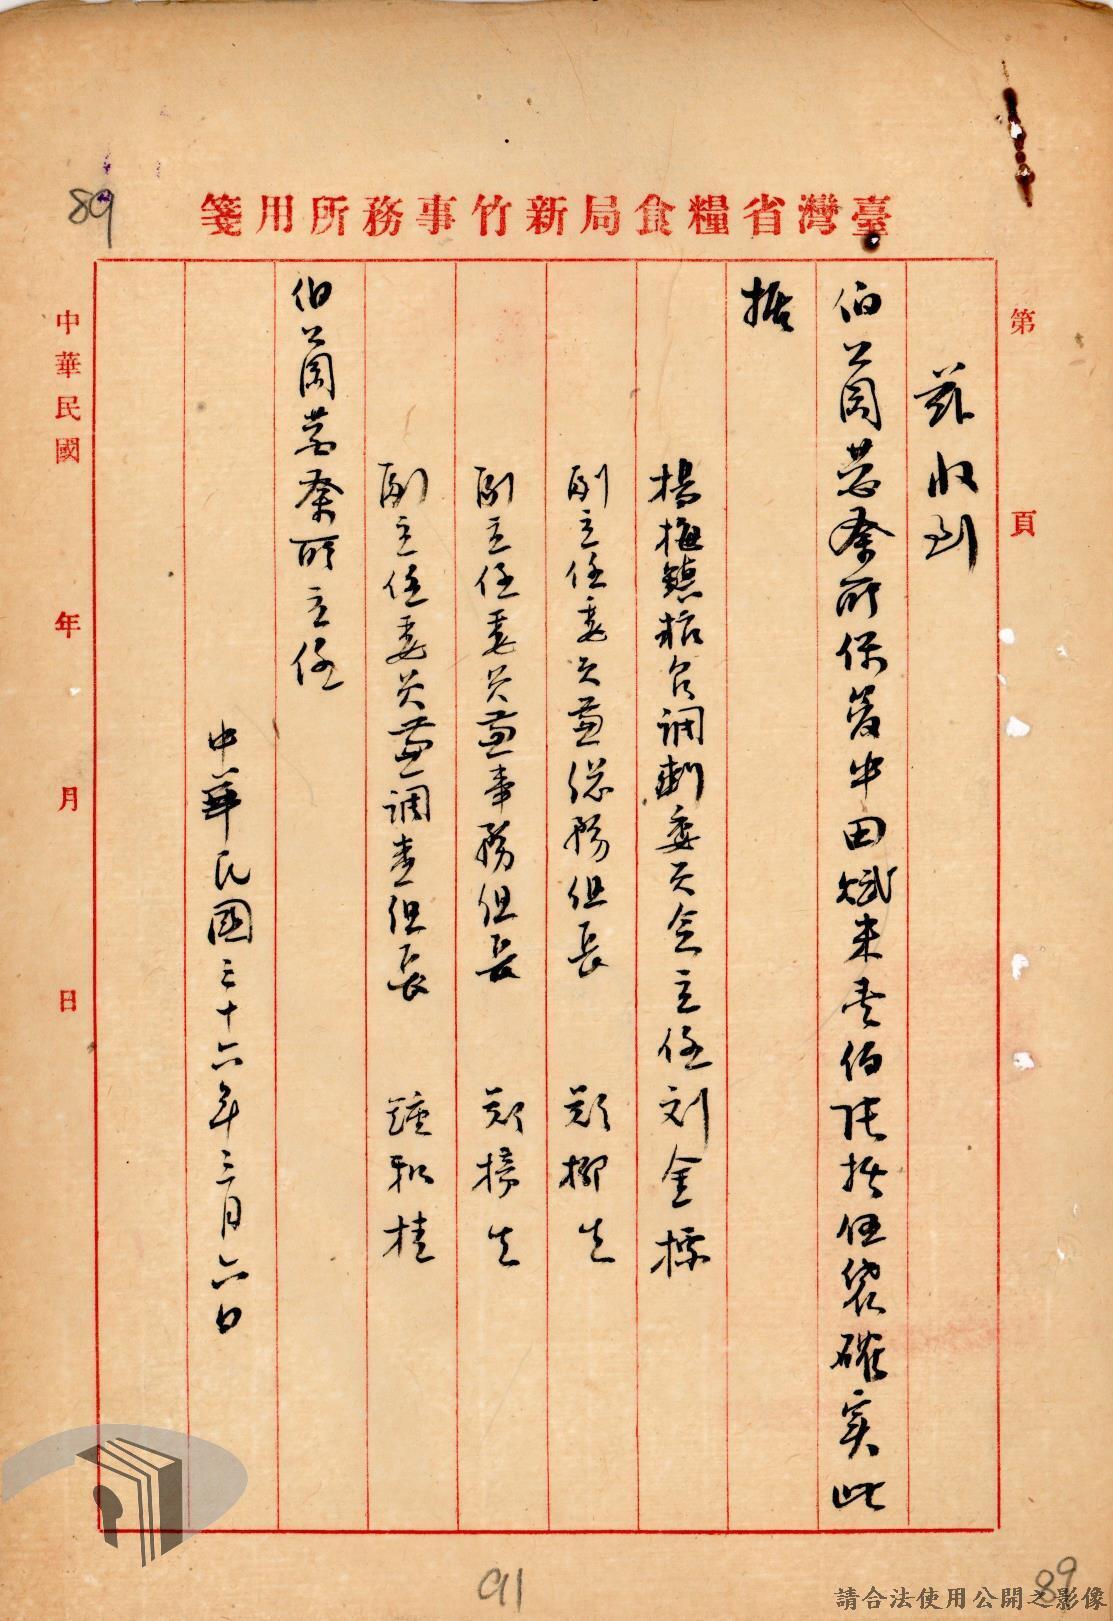 89
臺灣省糧食局新竹事務所用箋
第 頁
茲收到
伯公岡警察所保管中田斌米壹佰陸拾伍袋確實此
據
楊梅鎮糧食調劑委員會主任刘金標
副主任委員兼總務組長 鄭柳生
副主任委員兼事務組長 鄭揚生
副主任委員兼調查組長 鍾和桂
伯公岡警察所主任
中華民國三十六年三月六日
中華民國 年 月 日
91
89
請合法使用公開之影像